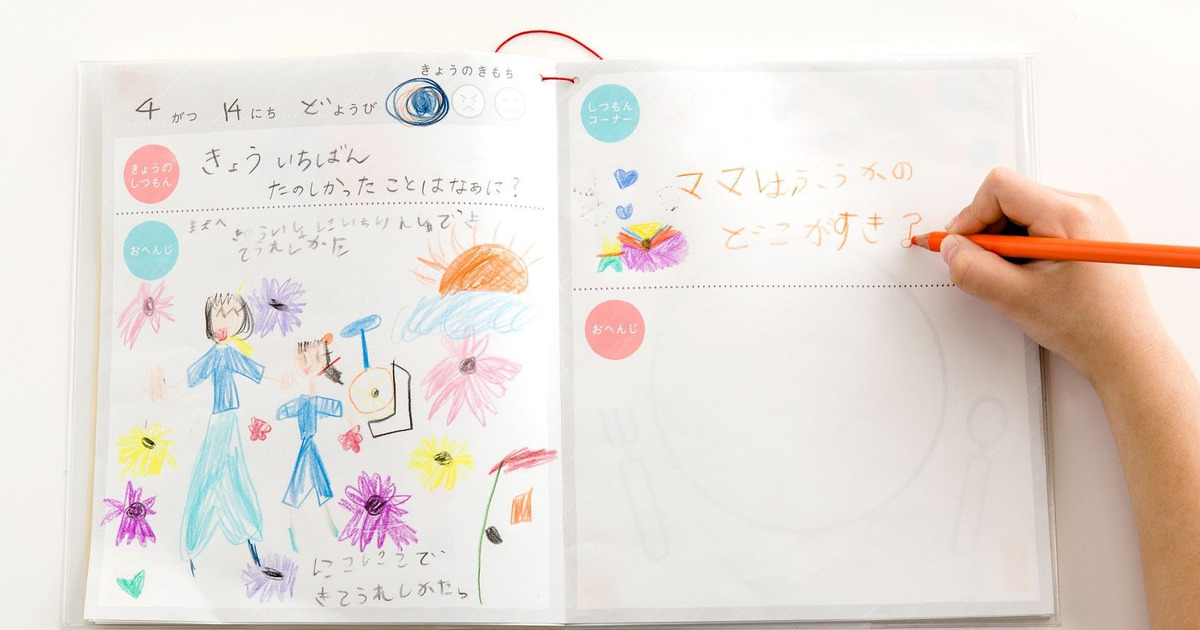 きょうのきもち
4 がつ 14 にち どようび
きょうの
しつもん
きょう いちばん
たのしかった ことは なぁに?
おへんじ
ままへ
きょういっしょに いちりんしゃで
てうれしかた
にこにこで
きてうれしかたら
しつもん
コーナー
ママは ふうかの
どこがすき?
おへんじ